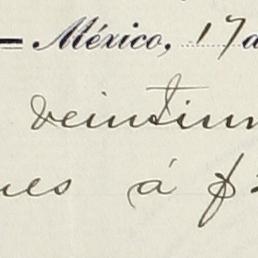 México, 17
veintiun
nes á $